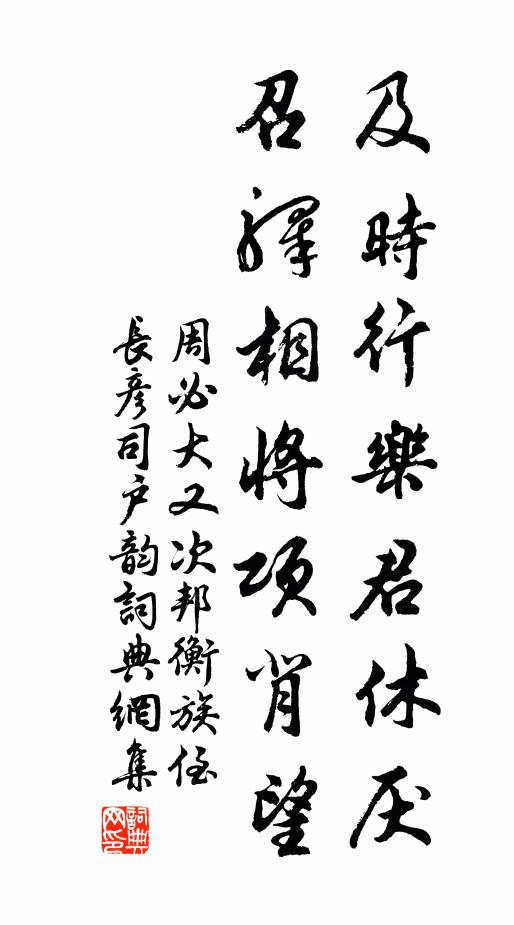 及時行樂君休厌
召驛相將項背望
周必大又次邦衡族侄
長彥司户韵詞典網集
詞典
网印